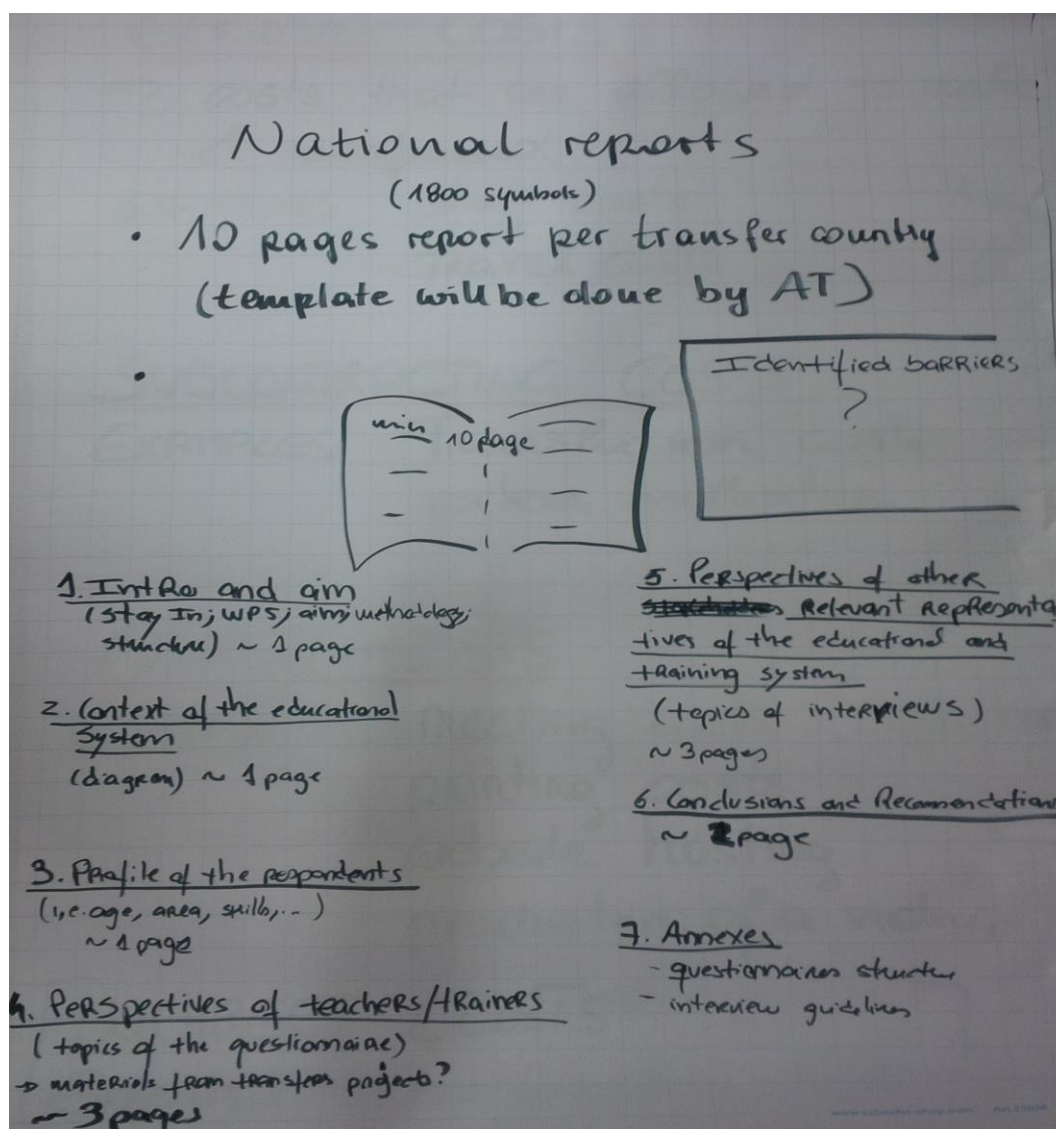 National reports
(1800 symbols)
• 10 pages report per transfer country
(template will be done by AT)
•
Identified baRRieRs
?
min 10 page
1. IntRo and aim
(Stay In; WP5; aim; methodology;
structure) ~ 1 page
2. Context of the educational
System
(diagram) ~ 1 page
3. Profile of the respondents
(i.e. age, area, skills, ...)
~ 1 page
4. Perspectives of teachers/trainers
(topics of the questionnaire)
→ materials from transfers project?
~ 3 pages
5. Perspectives of other
Stakeholders Relevant Representa
tives of the educational and
training system
(topics of interviews)
~ 3 pages
6. Conclusions and Recommendation
~ 2 page
7. Annexes
- questionnaires structure
- interview guidelines